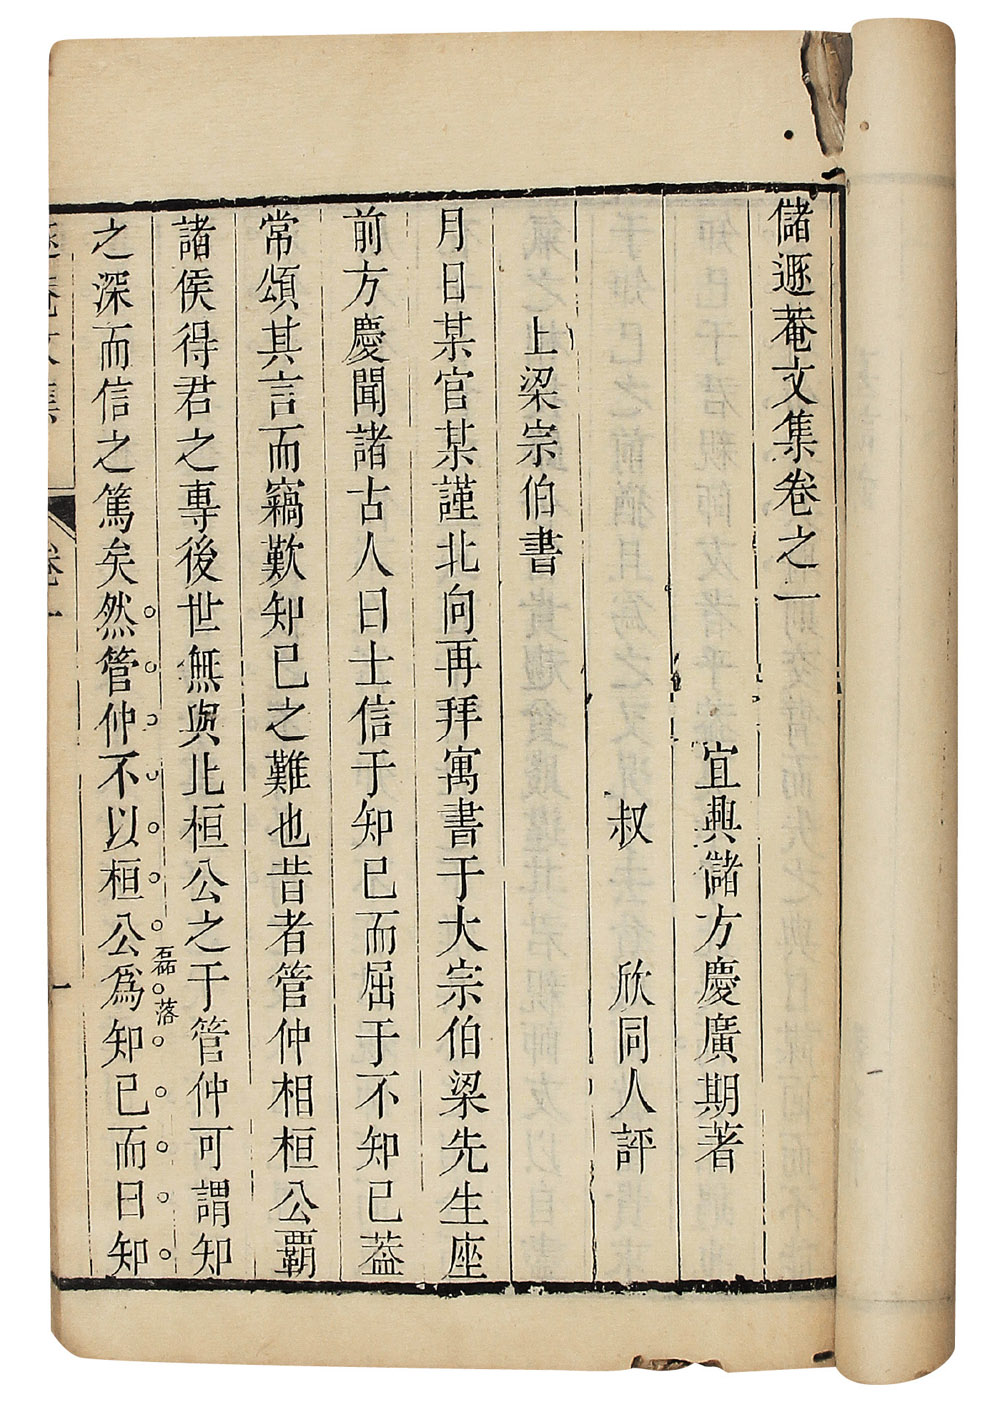 儲遯菴文集卷之一
宜興儲方慶廣期著
叔　欣同人評
上梁宗伯書
月日某官某謹北向再拜寓書于大宗伯梁先生座
前方慶聞諸古人曰士信于知已而屈于不知已葢
常頌其言而竊歎知已之難也昔者管仲相桓公覇
諸侯得君之專後世無與比桓公之于管仲可謂知
之深而信之篤矣然管仲不以桓公爲知已而曰知
磊落
遯菴文集
卷一
一